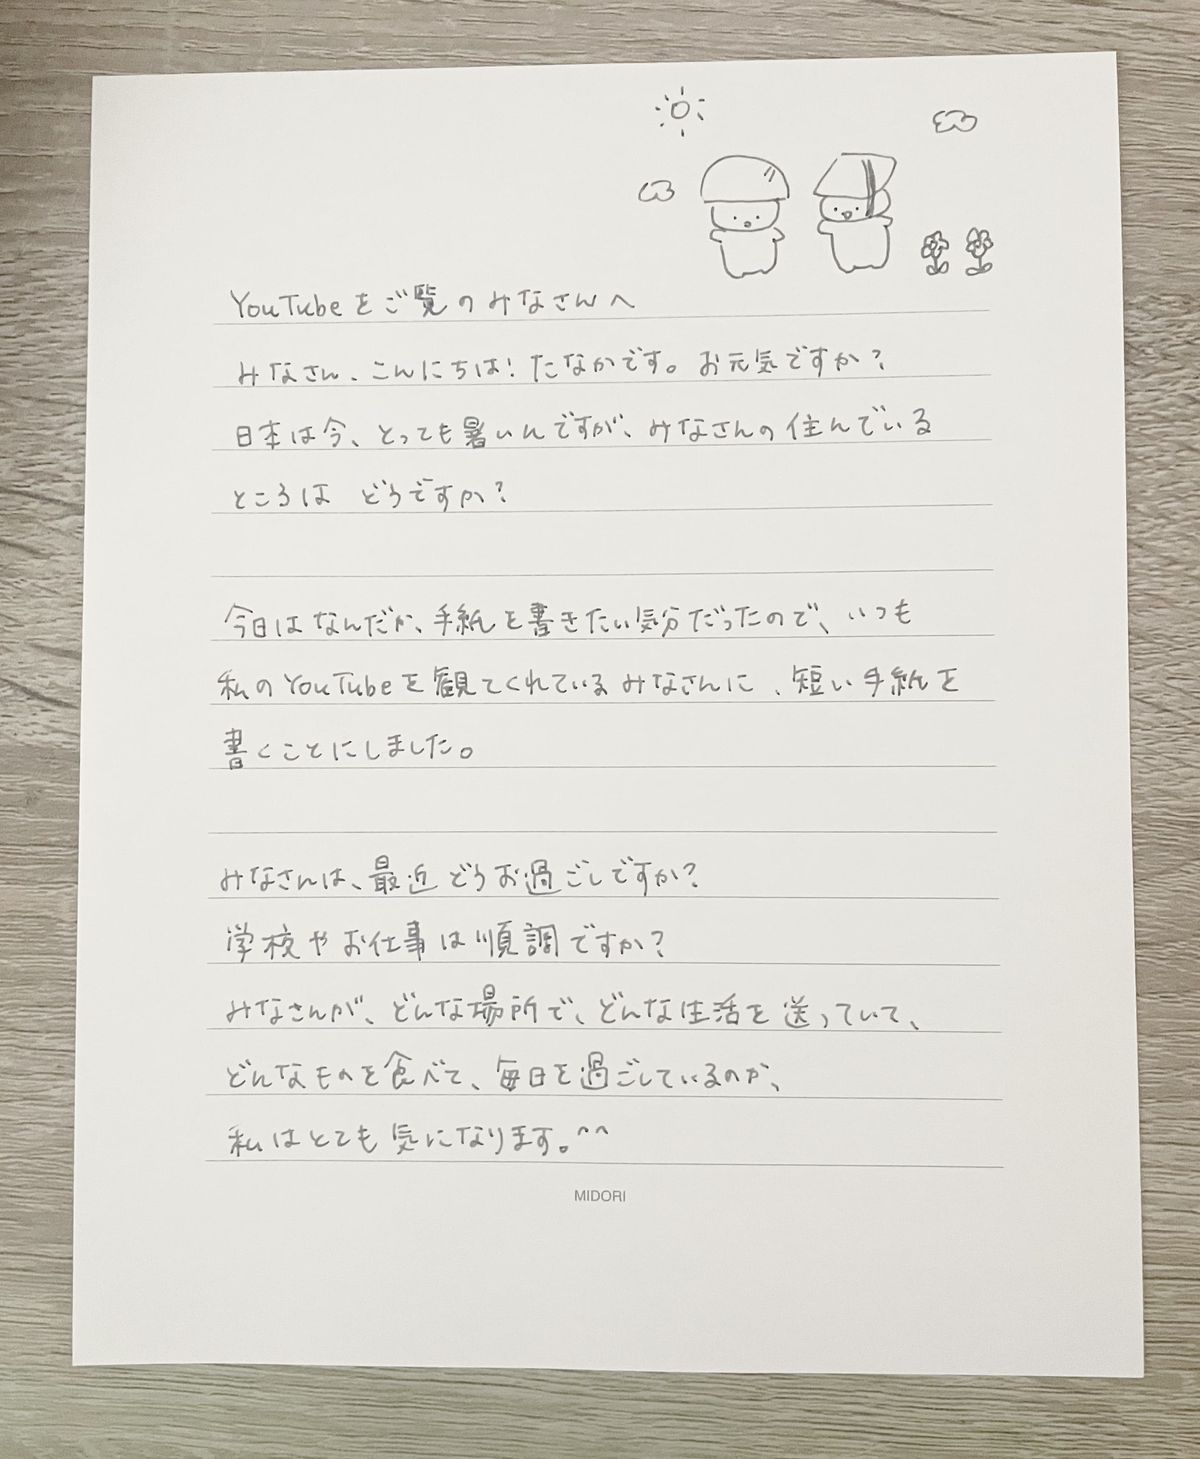 YouTubeをご覧のみなさんへ
みなさん、こんにちは！たなかです。お元気ですか？
日本は今、とっても暑いんですが、みなさんの住んでいる
ところは どうですか？
今日はなんだか、手紙を書きたい気分だったので、いつも
私のYouTubeを観てくれているみなさんに、短い手紙を
書くことにしました。
みなさんは、最近どうお過ごしですか？
学校やお仕事は順調ですか？
みなさんが、どんな場所で、どんな生活を送っていて、
どんなものを食べて、毎日を過ごしているのか、
私はとても気になります。^^
MIDORI